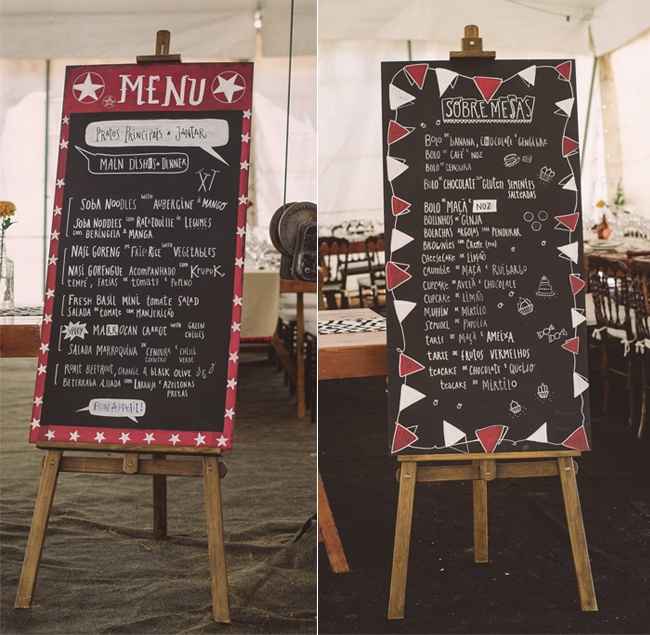 MENU
PRATOS PRINCIPAIS + JANTAR
MAIN DISHES + DINNER
SOBA NOODLES WITH AUBERGINE & MANGO
SOBA NOODLES COM RATATOUILLE DE LEGUMES
COM BERINGELA & MANGA
NASI GORENG FRIED RICE WITH VEGETABLES
NASI GORENGUE ACOMPANHADO COM KRUPUK
TEMPÉ, FATIAS DE TOMATE & PEPINO
FRESH BASIL MINI TOMATO SALAD
SALADA DE TOMATE COM MANJERICÃO
SPICY MARROCAN CARROT WITH GREEN
CHILIES
SALADA MARROQUINA DE CENOURA & CHILIS
VERDE
BEETROOT, ORANGE & BLACK OLIVE
BETERRABA ASSADA COM LARANJA & AZEITONAS
PRETAS
BON APPETIT!
SOBRE MESAS
BOLO DE BANANA, CHOCOLATE & GENGIBRE
BOLO DE CAFÉ & NOZ
BOLO DE CENOURA
BOLO CHOCOLATE SEM GLUTEN SEMENTES
SALTEADAS
BOLO DE MAÇÃ & NOZ
BOLINHOS DE GINJA
BOLACHAS ARGOLAS PARA PENDURAR
BROWNIES COM CREME
CHEESECAKE DE LIMÃO
CRUMBLE DE MAÇÃ & RUIBARBO
CUPCAKE DE AVELÃ & CHOCOLATE
CUPCAKE DE LIMÃO
MUFFIN DE MIRTILO
STRUDEL DE PAPOILA
TARTE DE MAÇÃ & AMEIXA
TARTE DE FRUTOS VERMELHOS
TEACAKE DE CHOCOLATE & QUEIJO
TEACAKE DE MIRTILO